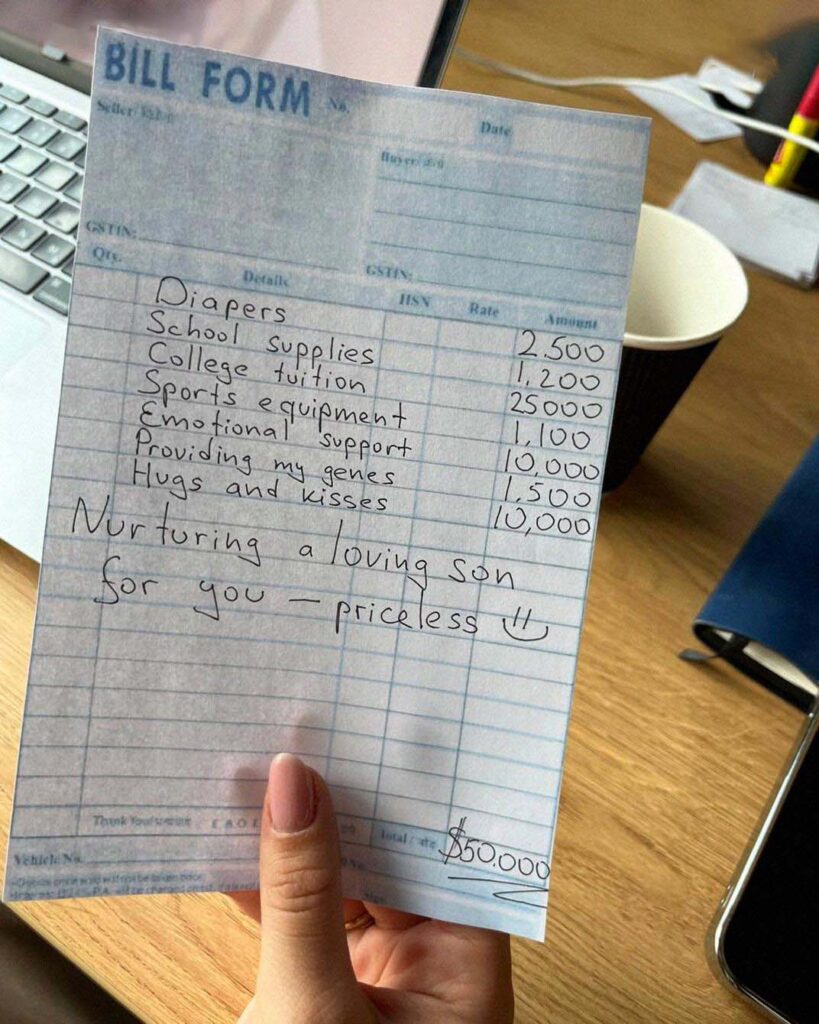 BILL FORM No.
Date
Seller
Buyer
GSTIN:
GSTIN:
Qty. Details HSN Rate Amount
Diapers 2.500
School supplies 1,200
College tuition 25000
Sports equipment 1,100
Emotional support 10,000
Providing my genes 1,500
Hugs and kisses 10,000
Nurturing a loving son
for you – priceless
Thank You! E & O E
Total $50.000
Vehicle No.